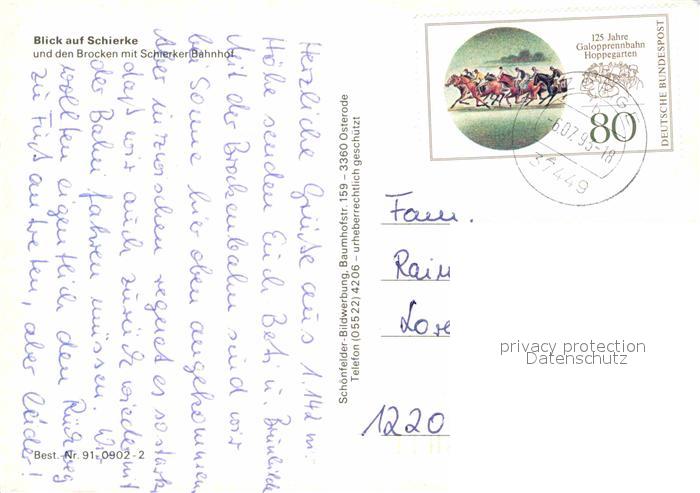 Blick auf Schierke
und den Brocken mit Schierker Bahnhof
Herzliche Grüße aus 1.142 m
Höhe senden Euch Betti u. Brunhilde
Mit der Brockenbahn sind wir
bei Sonne hier oben angekommen
Aber inzwischen regnet es so stark,
daß wir auch zurück wieder mit
der Bahn fahren müssen. Wir
wollten eigentlich den Rückweg
zu Fuß antreten, aber leider!
Best.-Nr. 91-0902-2
Schönfelder-Bildwerbung, Baumhofstr. 159 – 3360 Osterode
Telefon (05522) 4206 – urheberrechtlich geschützt
125 Jahre
Galopprennbahn
Hoppegarten
80
DEUTSCHE BUNDESPOST
37449
Fam.
1220
privacy protection
Datenschutz